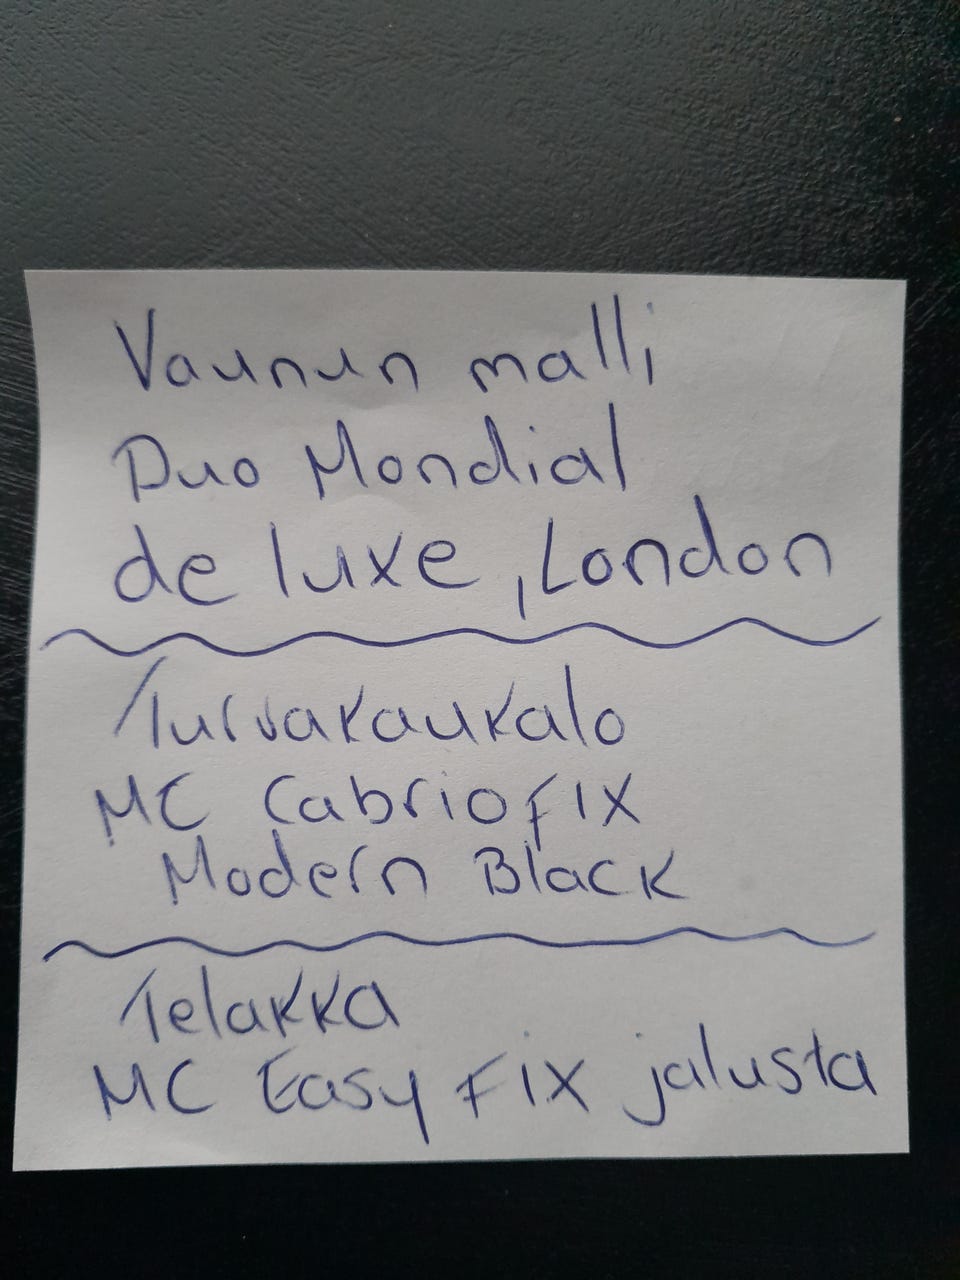 Vaunun malli
Duo Mondial
de luxe, London
Turvakaukalo
MC Cabriofix
Modern Black
Telakka
MC Easy Fix jalusta